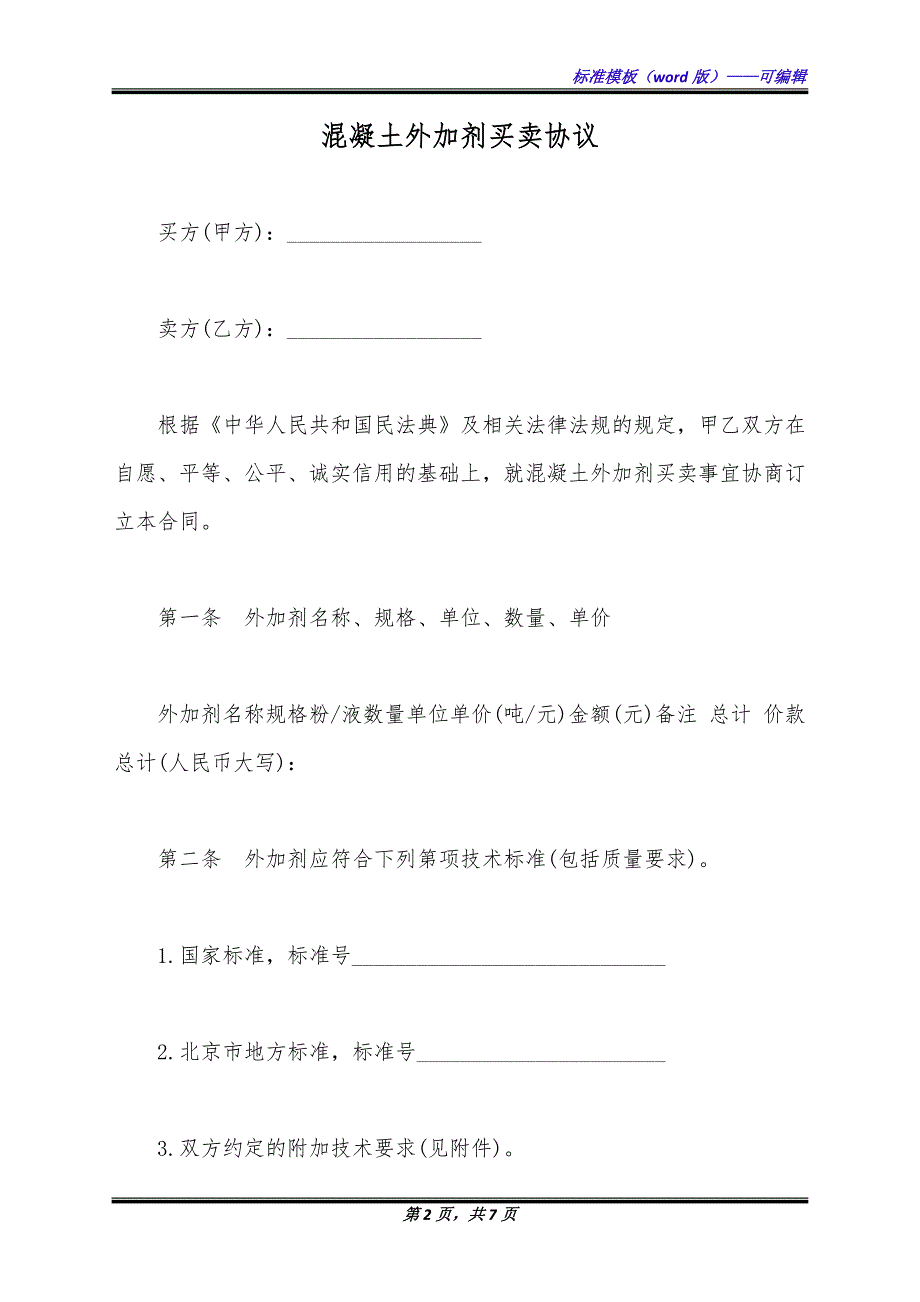 标准模板（word 版）——可编辑
混凝土外加剂买卖协议
买方(甲方)：__________________
卖方(乙方)：__________________
根据《中华人民共和国民法典》及相关法律法规的规定，甲乙双方在
自愿、平等、公平、诚实信用的基础上，就混凝土外加剂买卖事宜协商订
立本合同。
第一条　外加剂名称、规格、单位、数量、单价
外加剂名称规格粉/液数量单位单价(吨/元)金额(元)备注 总计 价款
总计(人民币大写)：
第二条　外加剂应符合下列第项技术标准(包括质量要求)。
1.国家标准，标准号_____________________________
2.北京市地方标准，标准号_______________________
3.双方约定的附加技术要求(见附件)。
第 2 页，共 7 页